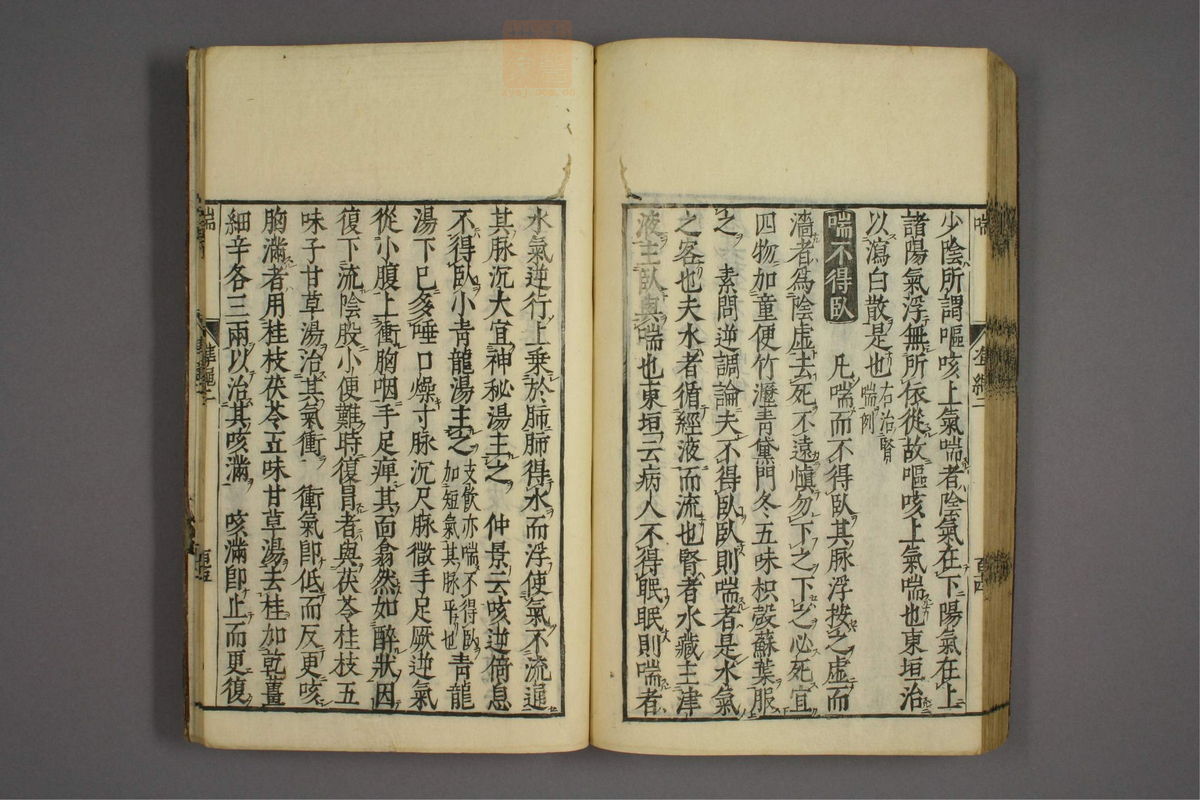 少陰所謂嘔咳上氣喘者陰氣在下陽氣在上
諸陽氣浮無所依從故嘔咳上氣喘也東垣治
以瀉白散是也右治腎喘例
喘不得臥　凡喘而不得臥其脈浮按之虛而
濇者為陰虛去死不遠慎勿下之下之必死宜
四物加童便竹瀝青黛門冬五味枳殼蘇葉服
之　素問逆調論夫不得臥臥則喘者是水氣
之客也夫水者循經液而流也腎者水藏主津
液主臥與喘也東垣云病人不得眠眠則喘者
水氣逆行上乘於肺肺得水而浮使氣不流通
其脈沉大宜神秘湯主之　仲景云咳逆倚息
不得臥小青龍湯主之支飲亦喘不得臥加短氣其脈平也青龍
湯下已多唾口燥寸脈沉尺脈微手足厥逆氣
從小腹上衝胸咽手足痺其面翕然如醉狀因
復下流陰股小便難時復冒者與茯苓桂枝五
味子甘草湯治其氣衝　衝氣即低而反更咳
胸滿者用桂枝茯苓五味甘草湯去桂加乾薑
細辛各三兩以治其咳滿　咳滿即止而更復